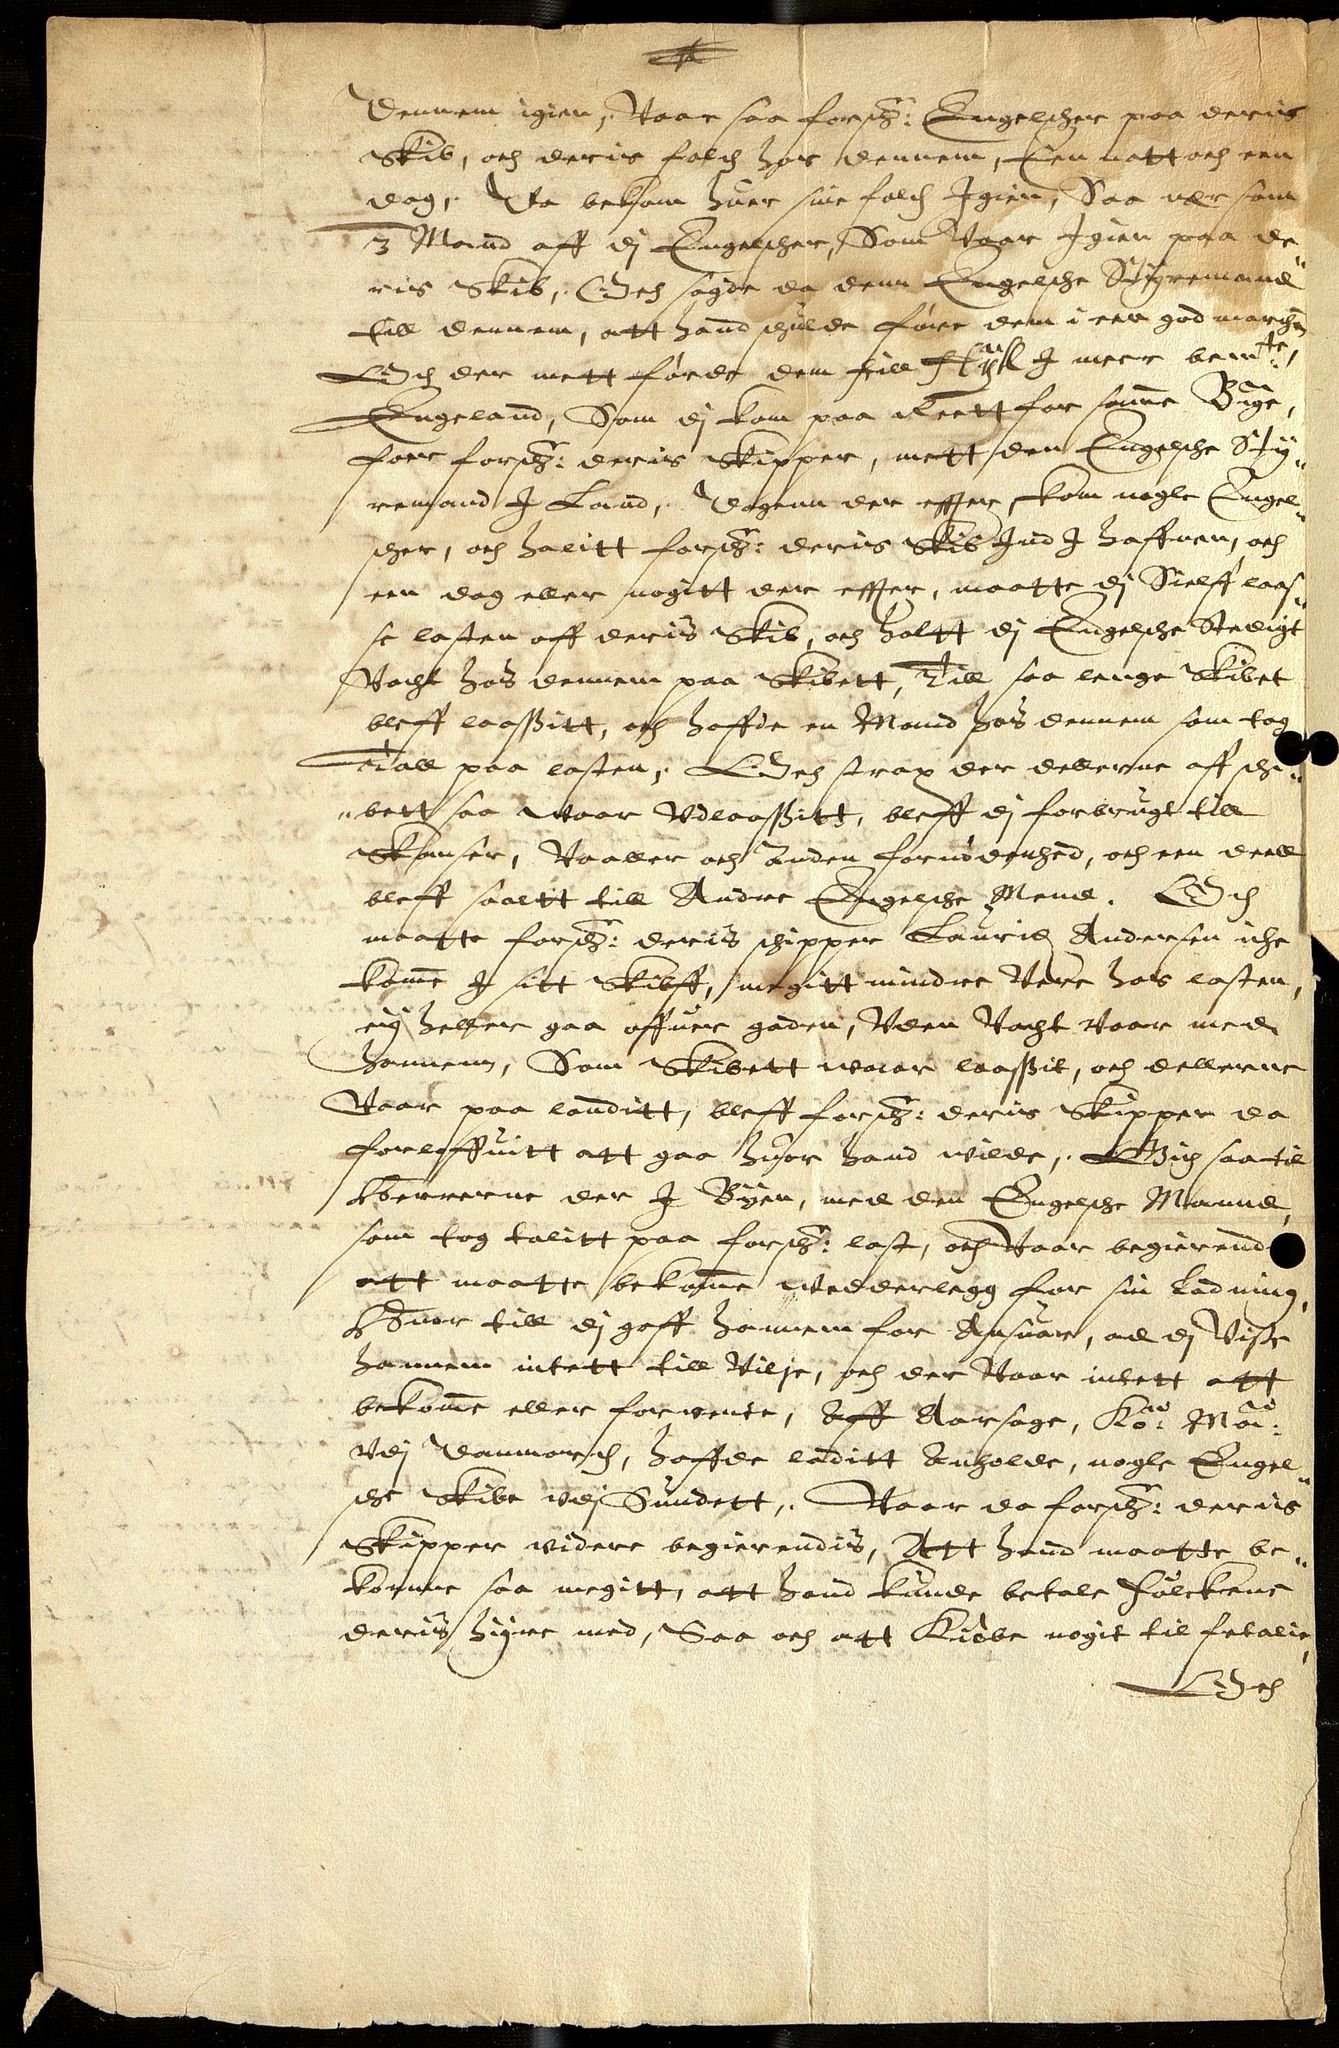 Dennem igien, Vaar saa forschr: Engelscher paa deris
Skib, och deris folch hos dennem, Een natt och een
dag, Da bekom huer sine folch Igien, Saa nær som
3 Mand aff dj Engelscher, Som Vaar Igien paa de„
ris Skib, Och sagde da denn Engelsche Styremand
till dennem, att hand schulde føre dem i een god
Och der mett førde dem till I meer bemte:
Engeland, Som dj kom paa Reett for samme Byge,
foer forschr: deris Skipper, mett den Engelsche Sty„
remand I Land, Dagenn der effter, kom nogle Engel„
scher, och halitt forschr: deris Skib Ind I haffnen, och
een dag eller nogitt der effter, maatte dj Sielff laas„
se lasten aff deris Skib, och holtt dj Engelsche Stedigt
Vacht hos dennem paa Skibett, Till saa lenge Skibet
bleff laassitt, och haffde en Mand hos dennem som tog
tall paa lasten, Och strax der dellerne aff schi„
„bett saa waar Vdlaassitt, bleff dj forbrugt till
Skanser, Vaaller och anden fornødenhed, och een deell
bleff saaltt till Andre Engelsche Mend. Och
maatte forschr: deris schipper Laurid Andersen iche
komme I sitt Skibff, megitt mindre Vere hos lasten,
eij heller gaa offuer gaden, Vden Vacht vaar med
hannem, Som Skibett waar laassit, och dellerne
Vaar paa landitt, bleff forschr: deris Skipper da
forløffuitt att gaa huor hand wilde, Gich saa til
Herrerne der I Byen, med den Engelsche Mannd,
som tog talitt paa forschr: last, och Vaar begierend
att maatte bekomme wedderlegg for sin Ladning,
Huor till dj gaff hannem for Ansuar, ad dj Viste
hannem intett till Vilje, och der Vaar intett att
bekomme eller forvente, Aff Aarsage, Ko: Ma:
vdj Danmarch, haffde laditt Anholde, nogle Engel„
sche Skibe vdj Sundett, Vaar da forschr: deris
Skipper videre begierendis, Att hand maatte be„
komme saa megitt, att hand kunde betale Folckene
deris hyre med, Saa och att Kiøbe nogit til fetalie,
Och